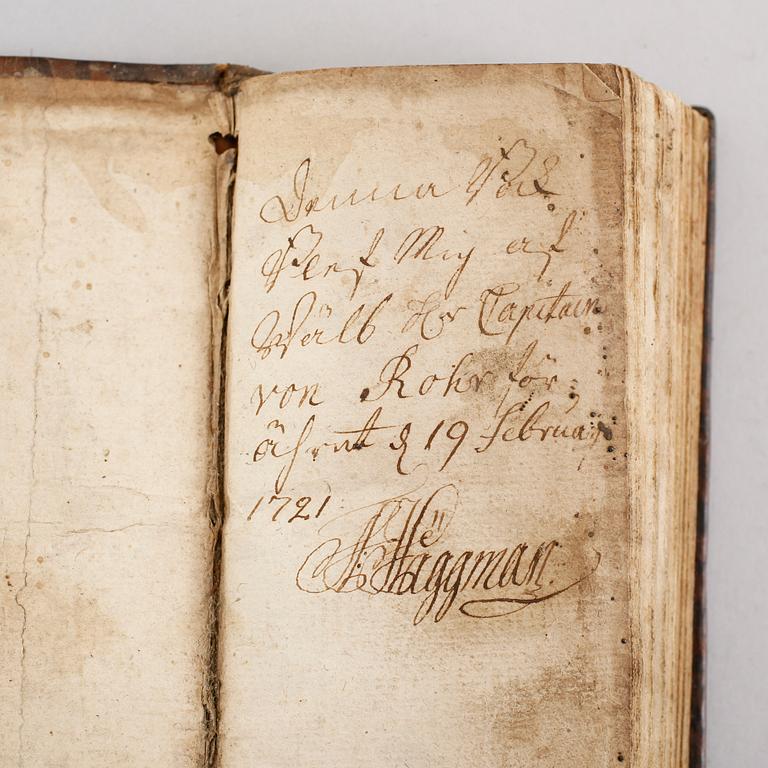 Denna Bok
Blef Mig af
Wälb Hr Capitain
von Rohr för
ährat d 19 Februar
1721
Häggman